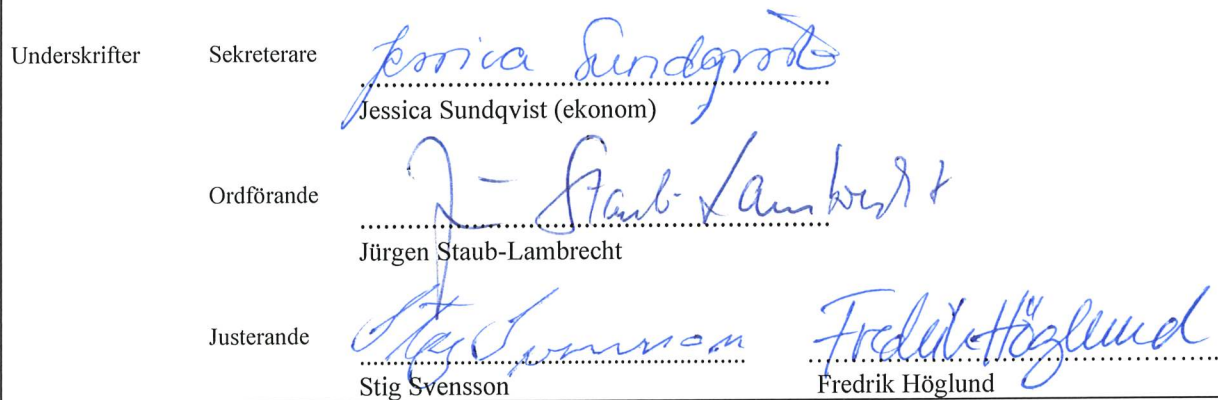 Underskrifter Sekreterare Jessica Sundqvist
Jessica Sundqvist (ekonom)
Ordförande J Staub-Lambrecht
Jürgen Staub-Lambrecht
Justerande Stig Svensson Fredrik Höglund
Stig Svensson Fredrik Höglund